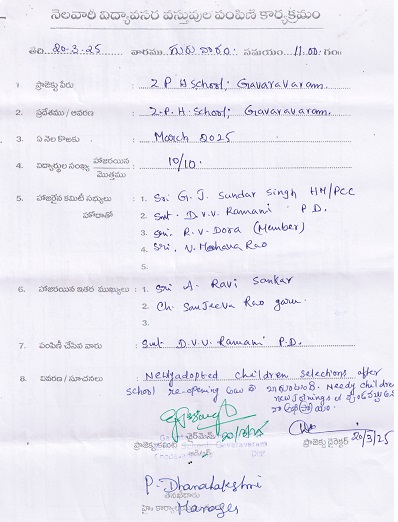 నెలవారి విద్యావసర వస్తువుల పంపిణీ కార్యక్రమం
తేది 20-3-25 వారము గురు వారం: సమయం 11.00 గం॥
1. ప్రాజెక్టు పేరు : Z P H School; Gavaravaram.
2. ప్రదేశము / ఆవరణ : Z.P.H. School; Gavaravaram.
3. ఏ నెల కొఱకు : March 2025
4. విద్యార్థుల సంఖ్య హాజరయిన / మొత్తము : 10/10.
5. హాజరైన కమిటీ సభ్యులు హోదాతో : 1. Sri G. J. Sundar Singh HM/PCC
2. Smt. D.V.V. Ramani P.D.
3. Sri. R.V. Dora (Member)
4. Sri. V. Mohana Rao
5.
6. హాజరయిన ఇతర ముఖ్యులు : 1. Sri A. Ravi Sankar
2. Ch. Sanjeeva Rao garu.
3.
7. పంపిణీ చేసిన వారు : Smt D.V.V. Ramani P.D.
8. వివరణ / సూచనలు : Newly adopted children selections after
school re-opening Needy children
new joinings
ప్రాజెక్టు కమిటీ ఛైర్మెన్ 20/3/25
ప్రాజెక్టు డైరెక్టర్ 20/3/25
P. Dhanalakshmi
Manager